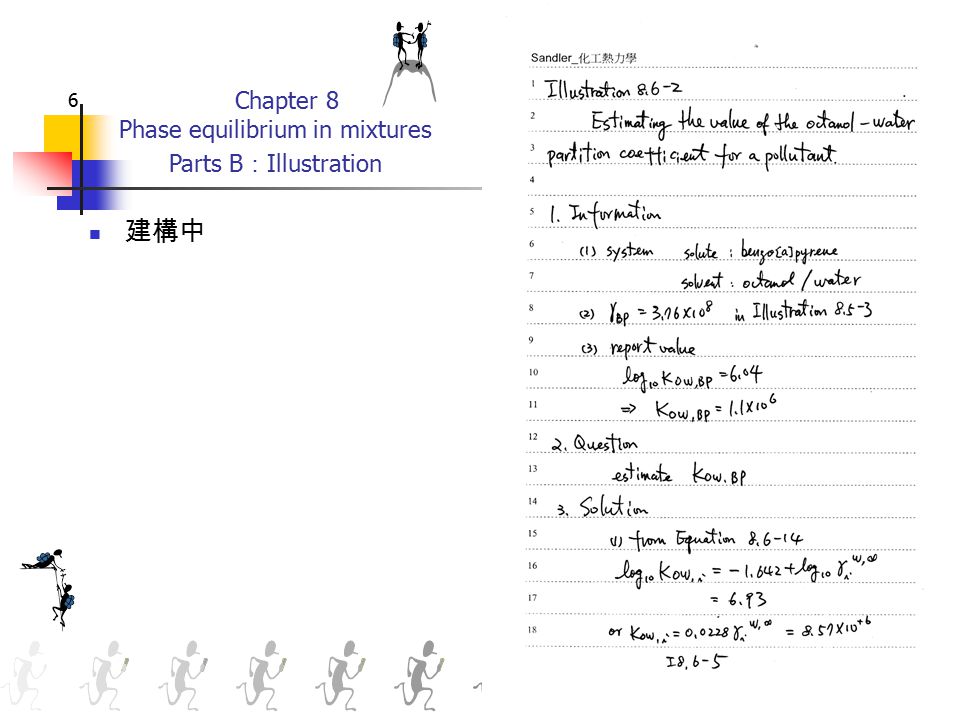 6
Chapter 8
Phase equilibrium in mixtures
Parts B：Illustration
建構中
Sandler_化工熱力學
1 Illustration 8.6-2
2 Estimating the value of the octanol-water
3 partition coefficient for a pollutant.
4
5 1. Information
6 (1) system solute : benzo[a]pyrene
7 solvent : octanol/water
8 (2) γBP = 3.76×10⁸ in Illustration 8.5-3
9 (3) report value
10 log₁₀ Kow,BP = 6.04
11 ⇒ Kow,BP = 1.1×10⁶
12 2. Question
13 estimate Kow.BP
14 3. Solution
15 (1) from Equation 8.6-14
16 log₁₀ Kow,i = -1.642 + log₁₀ γi^w,∞
17 = 6.93
18 or Kow,i = 0.0228 γi^w,∞ = 8.57×10⁺⁶
I8.6-5